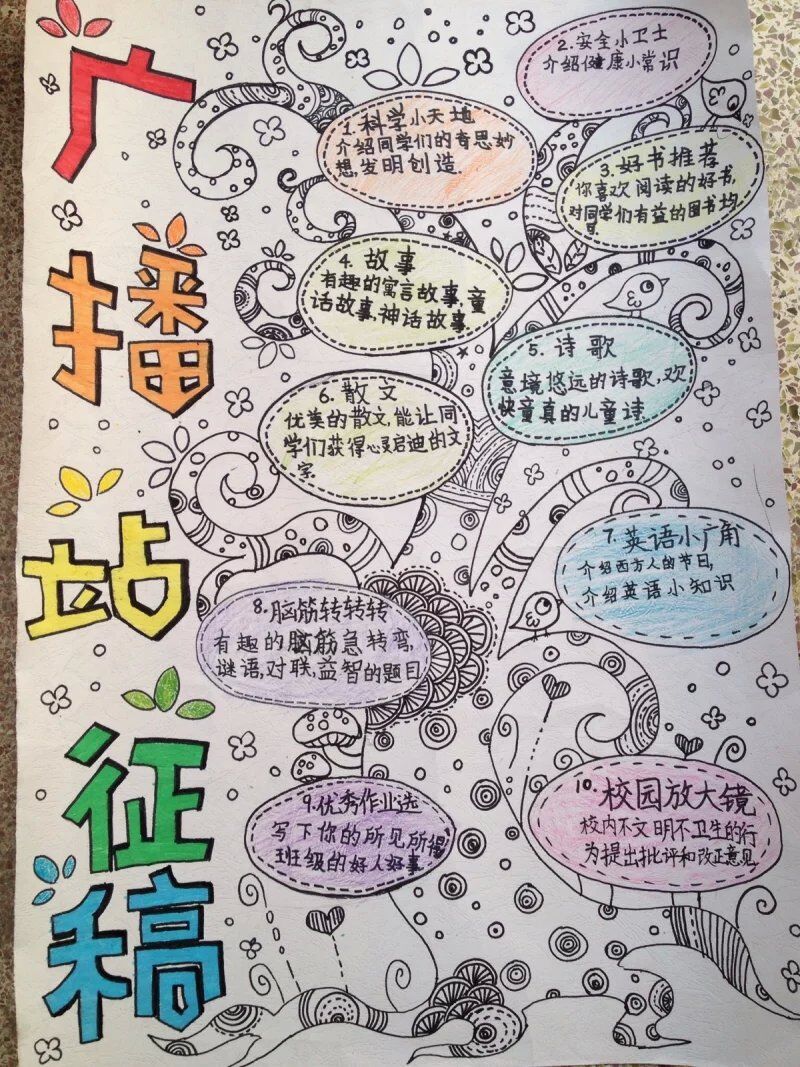 广播站征稿
1.科学小天地
介绍同学们的奇思妙
想,发明创造.
2.安全小卫士
介绍健康小常识
3.好书推荐
你喜欢阅读的好书,
对同学们有益的图书均
可
4.故事
有趣的寓言故事.童
话故事.神话故事.
5.诗歌
意境悠远的诗歌,欢
快童真的儿童诗
6.散文
优美的散文,能让同
学们获得心灵启迪的文
字
7.英语小广角
介绍西方人的节日,
介绍英语小知识
8.脑筋转转转
有趣的脑筋急转弯,
谜语,对联,益智的题目
9.优秀作业选
写下你的所见所得
班级的好人好事
10.校园放大镜
校内不文明不卫生的行
为提出批评和改正意见